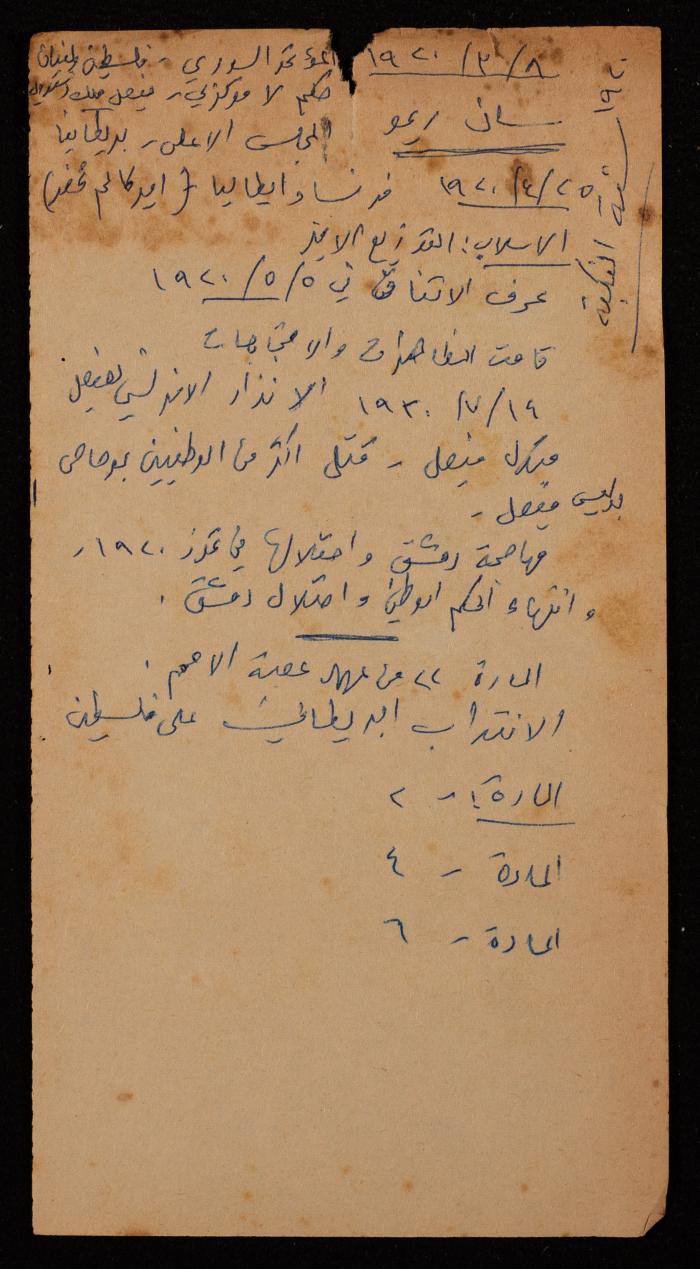 ١٩٢٠/٣/٨ المؤتمر السوري - فلسطين ولبنان
حكم لا مركزي - فيصل ملك
سان ريمو المجلس الاعلى - بريطانيا
١٩٢٠/٤/٢٥ فرنسا وايطاليا (اميركا لم تحضر)
الاسلاب: التوزيع الاخير
عرف الاتفاق في ١٩٢٠/٥/٥
قامت المظاهرات والاحتجاجات
١٩٢٠/٧/١٤ الانذار الافرنسي لفيصل
فيصل - قتل اكثر من الوطنيين برصاص
بوليس فيصل -
مهاجمة دمشق واحتلالها في تموز ١٩٢٠ -
وانتهاء الحكم الوطني واحتلال دمشق .
المادة ٢٢ من عهد عصبة الامم .
الانتداب البريطاني على فلسطين
المادة - ٢
المادة - ٤
المادة - ٦
النكبة